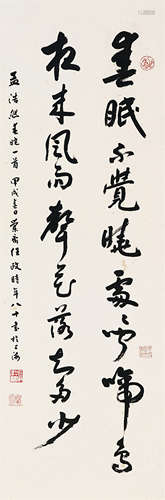 春眠不覺曉處處聞啼鳥
夜来風雨聲花落知多少
孟浩然春曉一首 甲戌春日 蘭齋任政時年八十書於上海